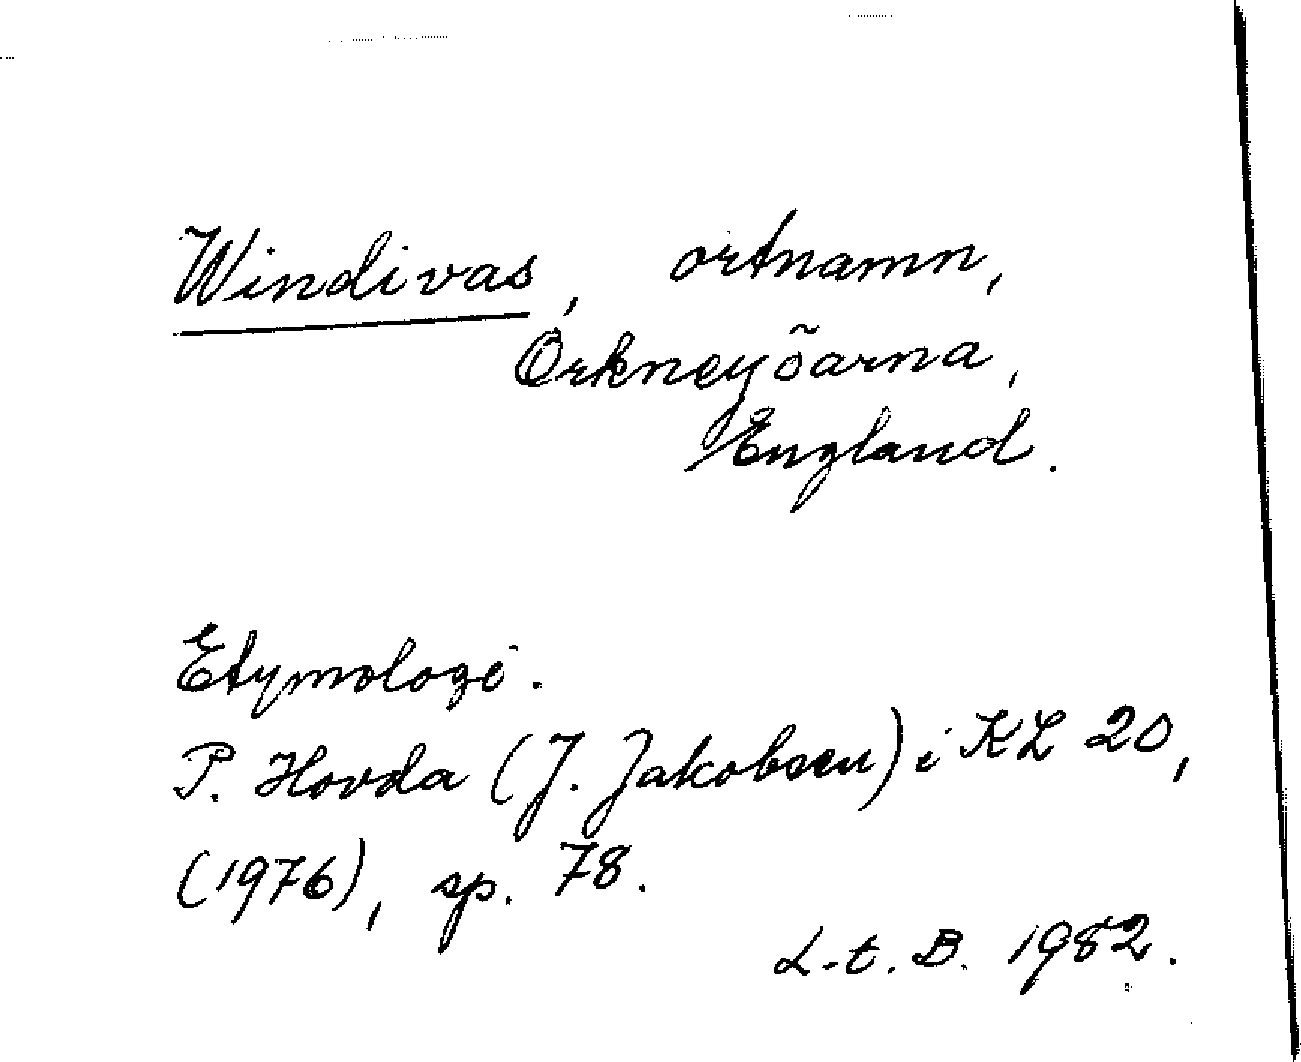 Windivas, ortnamn,
Orkneyöarna,
England.
Etymologi.
P. Hovda (J. Jakobsen) i KL 20,
(1976), sp. 78.
L-t. B. 1982.